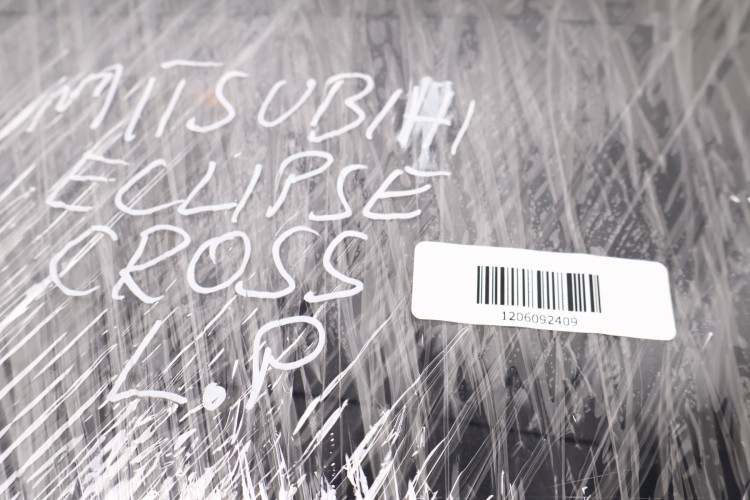 MITSUBIHI
ECLIPSE
CROSS
L.P
1206092409